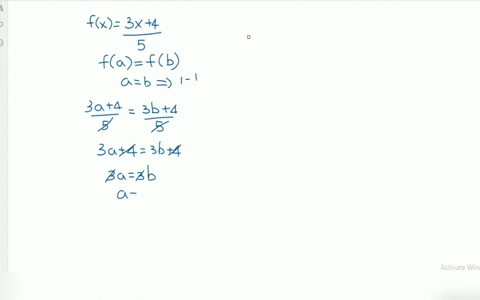 f(x) = 3x+4
5
f(a) = f(b)
a = b => 1-1
3a+4 = 3b+4
5 5
3a+4 = 3b+4
3a = 3b
a-
Activate Win